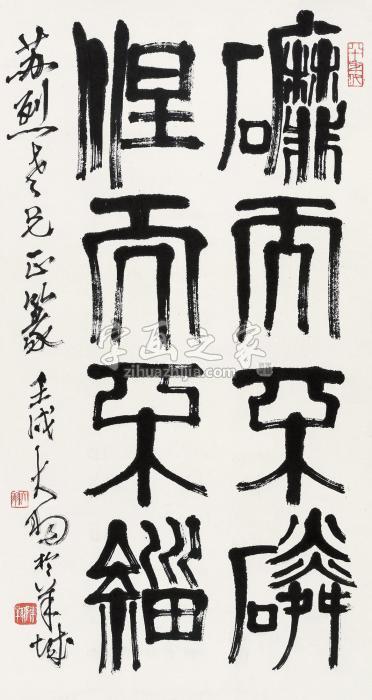 䃺而不磷
涅而不緇
苏烈老兄正篆 壬戌大羽於羊城
字画之家
zihuazhijia.com